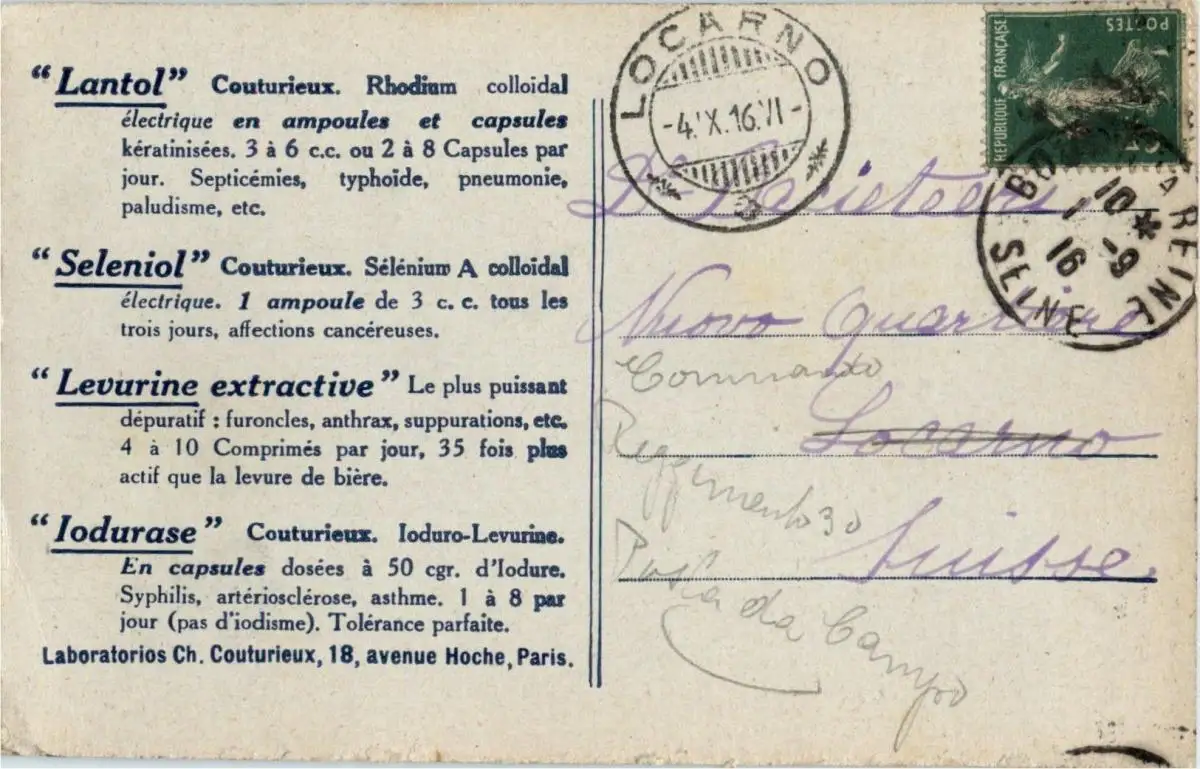 “Lantol” Couturieux. Rhodium colloidal
électrique en ampoules et capsules
kératinisées. 3 à 6 c.c. ou 2 à 8 Capsules par
jour. Septicémies, typhoïde, pneumonie,
paludisme, etc.
“Seleniol” Couturieux. Sélénium A colloidal
électrique. 1 ampoule de 3 c. c. tous les
trois jours, affections cancéreuses.
“Levurine extractive” Le plus puissant
dépuratif : furoncles, anthrax, suppurations, etc.
4 à 10 Comprimés par jour, 35 fois plus
actif que la levure de bière.
“Iodurase” Couturieux. Ioduro-Levurine.
En capsules dosées à 50 cgr. d'Iodure.
Syphilis, artériosclérose, asthme. 1 à 8 par
jour (pas d'iodisme). Tolérance parfaite.
Laboratorios Ch. Couturieux, 18, avenue Hoche, Paris.
LOCARNO
-4.X.16.VI-
REPUBLIQUE FRANÇAISE
POSTES
LA REINE
10 *
1 -9
16
SEINE
Dr
Nuovo Quartiere
Commando
Locarno
Reggimento 30
Suisse
Posta da Campo